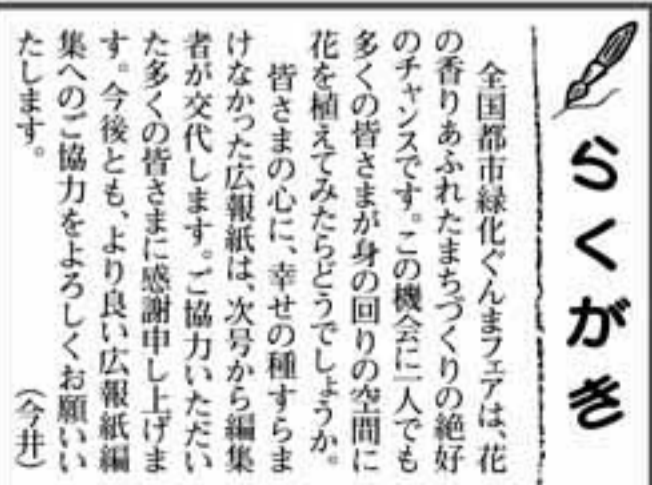 らくがき
全国都市緑化ぐんまフェアは、花
の香りあふれたまちづくりの絶好
のチャンスです。この機会に一人でも
多くの皆さまが身の回りの空間に
花を植えてみたらどうでしょうか。
皆さまの心に、幸せの種すらま
けなかった広報紙は、次号から編集
者が交代します。ご協力いただい
た多くの皆さまに感謝申し上げま
す。今後とも、より良い広報紙編
集へのご協力をよろしくお願いい
たします。
(今井)